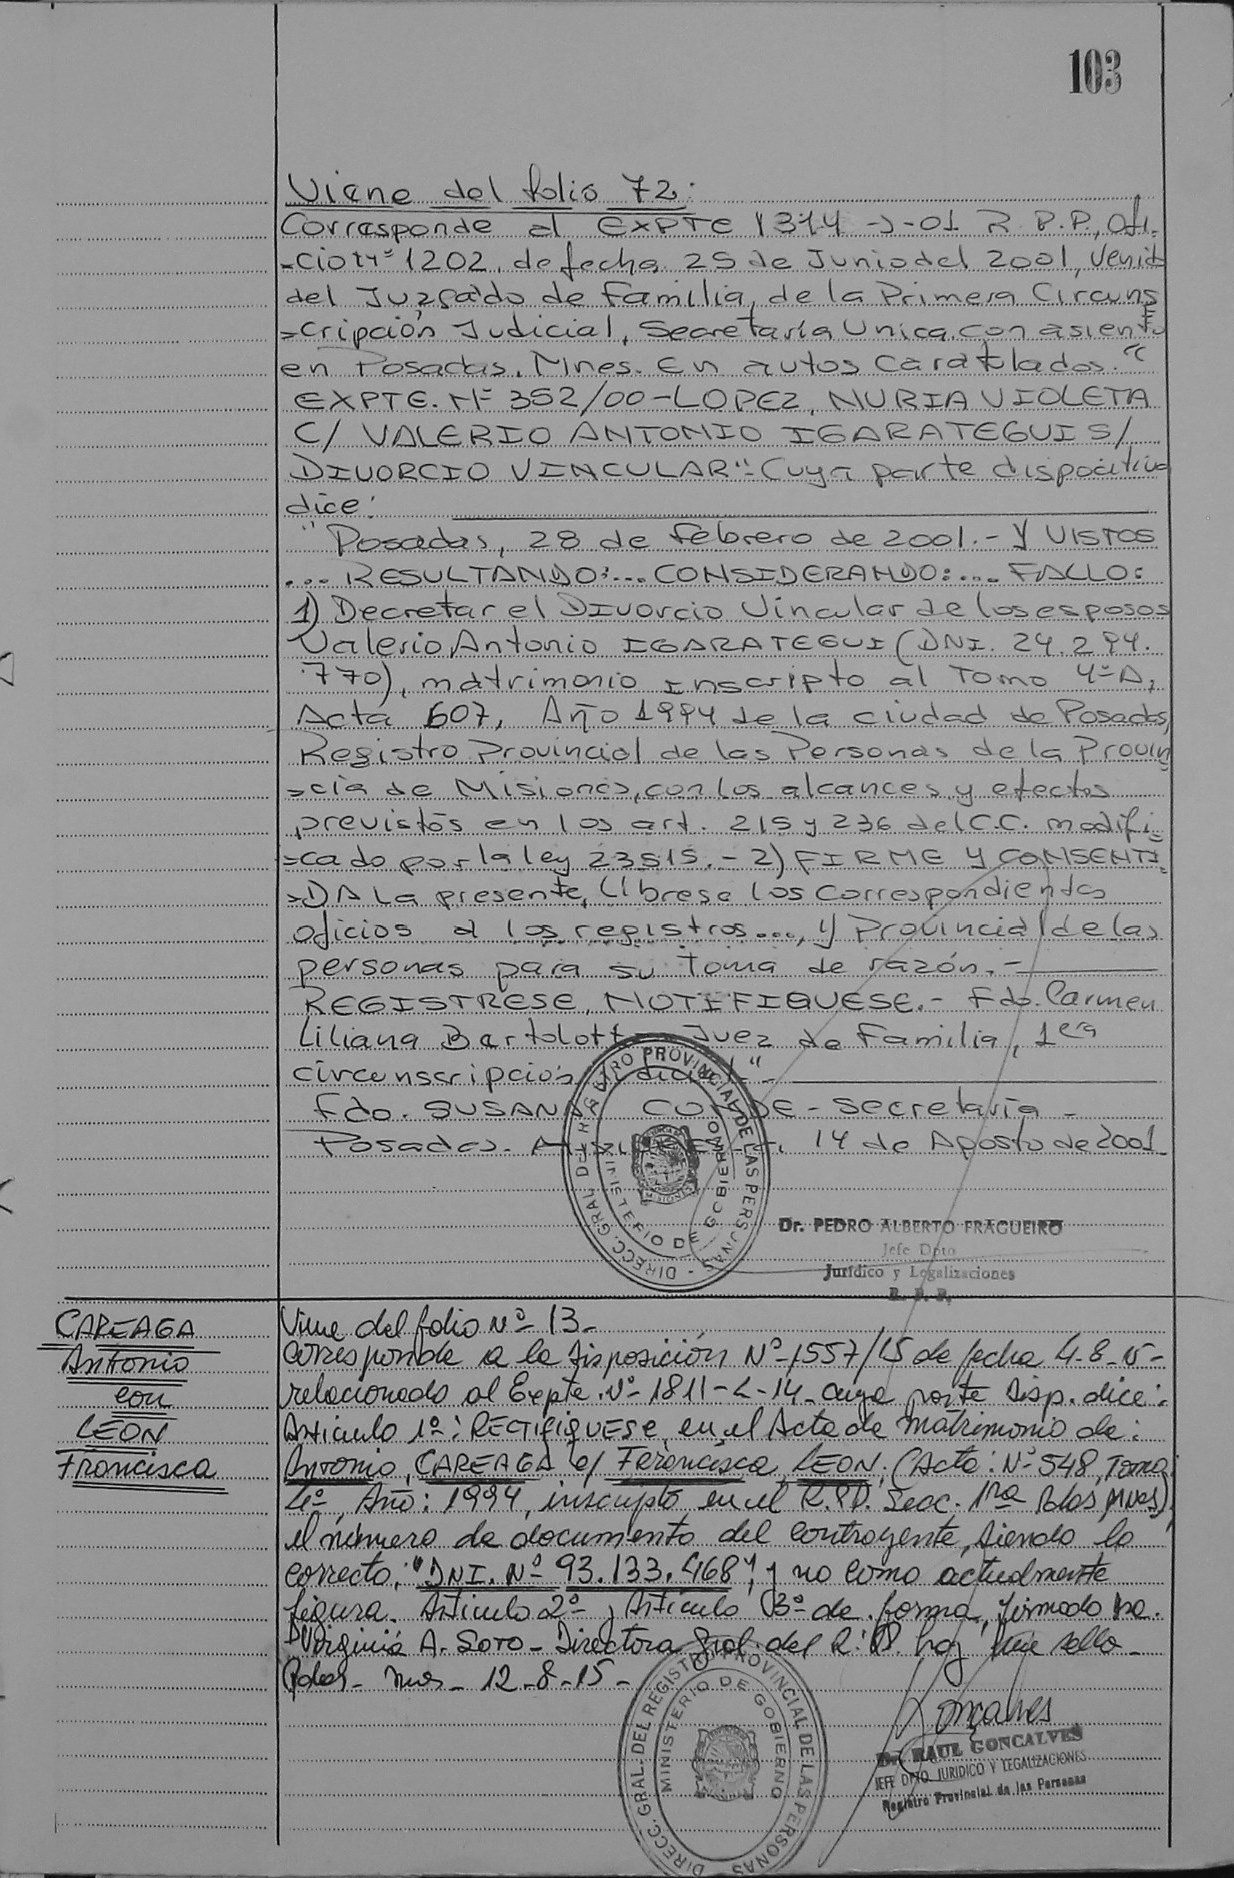 103
Viene del folio 72:
Corresponde al EXPTE 1314-J-01 R.P.P., Ofi-
-cio Nº 1202, de fecha 25 de Junio del 2001, venido
del Juzgado de Familia, de la Primera Circuns
=cripción Judicial, Secretaría Unica, con asiento
en Posadas, Mnes. En autos caratulados. "
EXPTE. Nº 352/00-LOPEZ, NURIA VIOLETA
C/ VALERIO ANTONIO IGARATEGUI S/
DIVORCIO VINCULAR"- Cuya parte dispocitiva
dice:
"Posadas, 28 de Febrero de 2001.- Y VISTOS
... RESULTANDO:... CONSIDERANDO:... FALLO:
1) Decretar el Divorcio Vincular de los esposos
Valerio Antonio IGARATEGUI (DNI. 24.294.
770), matrimonio inscripto al Tomo 4º A,
Acta 607, Año 1994 de la ciudad de Posadas,
Registro Provincial de las Personas de la Provin
=cia de Misiones, con los alcances y efectos
previstos en los art. 215 y 236 del C.C. modifi-
=cado por la ley 23515.- 2) FIRME Y CONSENTI
=DA La presente, Líbrese los correspondientes
oficios a los registros..., y Provincial de las
personas para su toma de razón.-
REGISTRESE, NOTIFIQUESE.- Fdo. Carmen
Liliana Bartolotti Juez de Familia, 1era
circunscripción Judicial"-
Fdo. SUSANA CONDE - Secretaria -
Posadas. 14 de Agosto de 2001
DIRECC. GRAL. DEL REGISTRO PROVINCIAL DE LAS PERSONAS
MINISTERIO DE GOBIERNO
Dr. PEDRO ALBERTO FRAGUEIRO
Jefe Dpto
Jurídico y Legalizaciones
R. P. P.
CAREAGA
Antonio
con
LEON
Francisca
Viene del folio Nº 13-
Corresponde a la Disposición Nº 1557/15 de fecha 4-8-15-
relacionado al Expte. Nº 1811-L-14 cuya parte Disp. dice:
Artículo 1º: RECTIFIQUESE, en el Acta de matrimonio de:
Antonio, CAREAGA c/ Francisca, LEON, (Acta: Nº 548, Tomo
4º, Año: 1994, inscripto en el R.P.P. Secc. 1ra Pdas Mnes),
el número de documento del contrayente, siendo lo
correcto: "DNI. Nº 93.133.468", y no como actualmente
figura. Artículo 2º y Artículo 3º de forma, firmado
Virginia A. Soto - Directora Gral. del R.P.P. hay sello-
Pdas- Mnes- 12-8-15-
DIRECC. GRAL. DEL REGISTRO PROVINCIAL DE LAS PERSONAS
MINISTERIO DE GOBIERNO
Goncalves
Dr. RAUL GONCALVES
JEFE DPTO. JURIDICO Y LEGALIZACIONES
Registro Provincial de las Personas